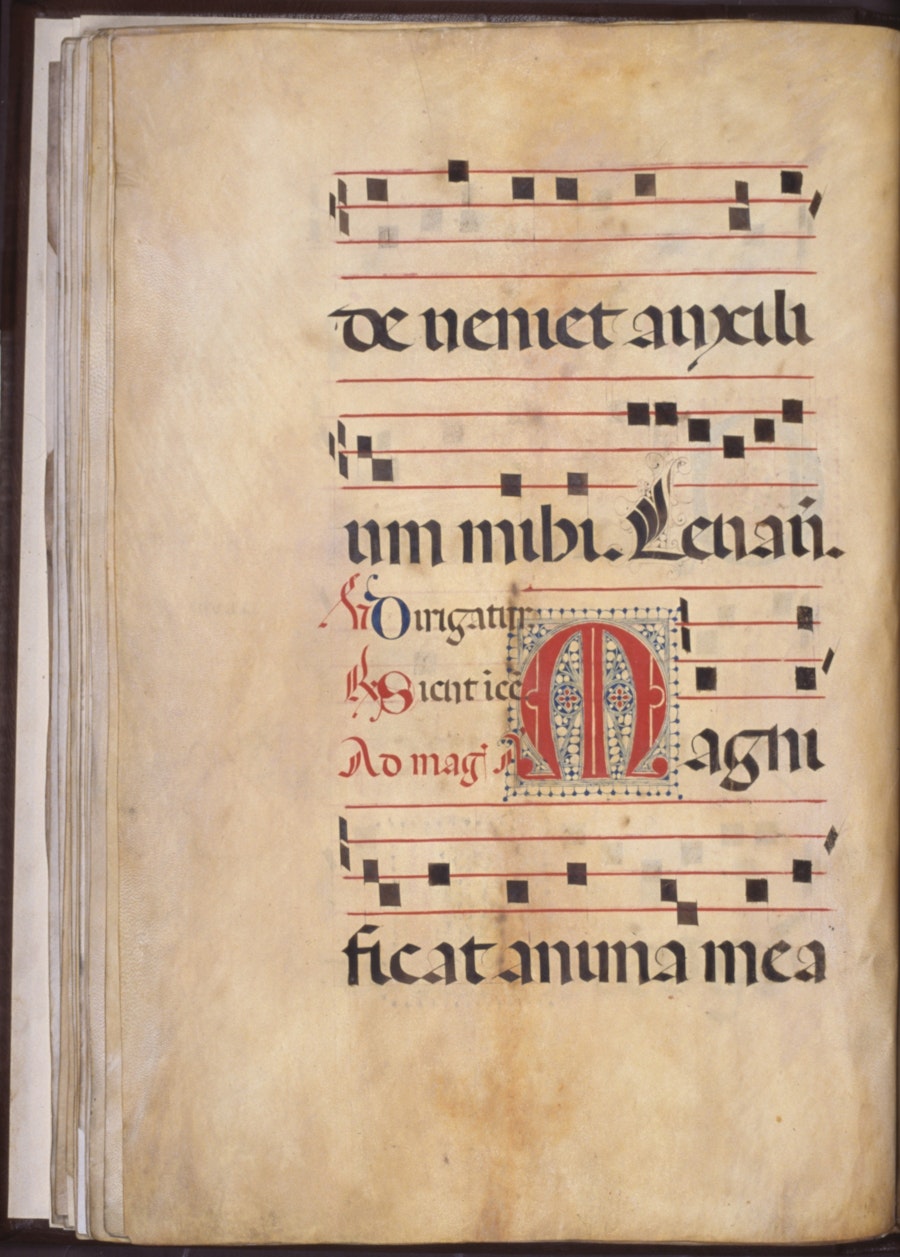 de veniet auxili
um mihi. Levavi.
Dirigatur
Sicut ice
Ad mag̃
Magni
ficat anima mea